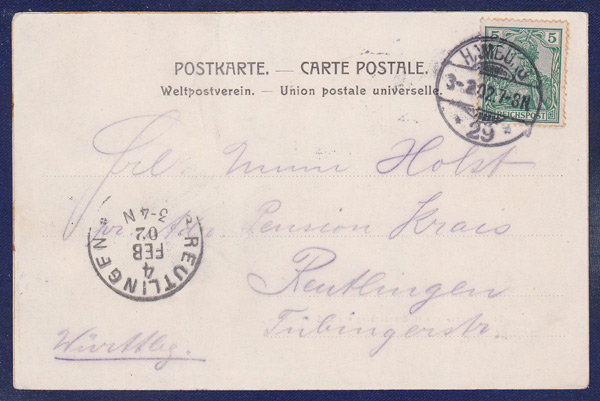 POSTKARTE. — CARTE POSTALE.
Weltpostverein. — Union postale universelle.
5 5
REICHSPOST
HAMBURG
3-2.02.7-8N
* 29 *
Frl. Holst
Pension Krais
Reutlingen
Tübingerstr.
Württbg.
REUTLINGEN
4
FEB
02
3-4 N